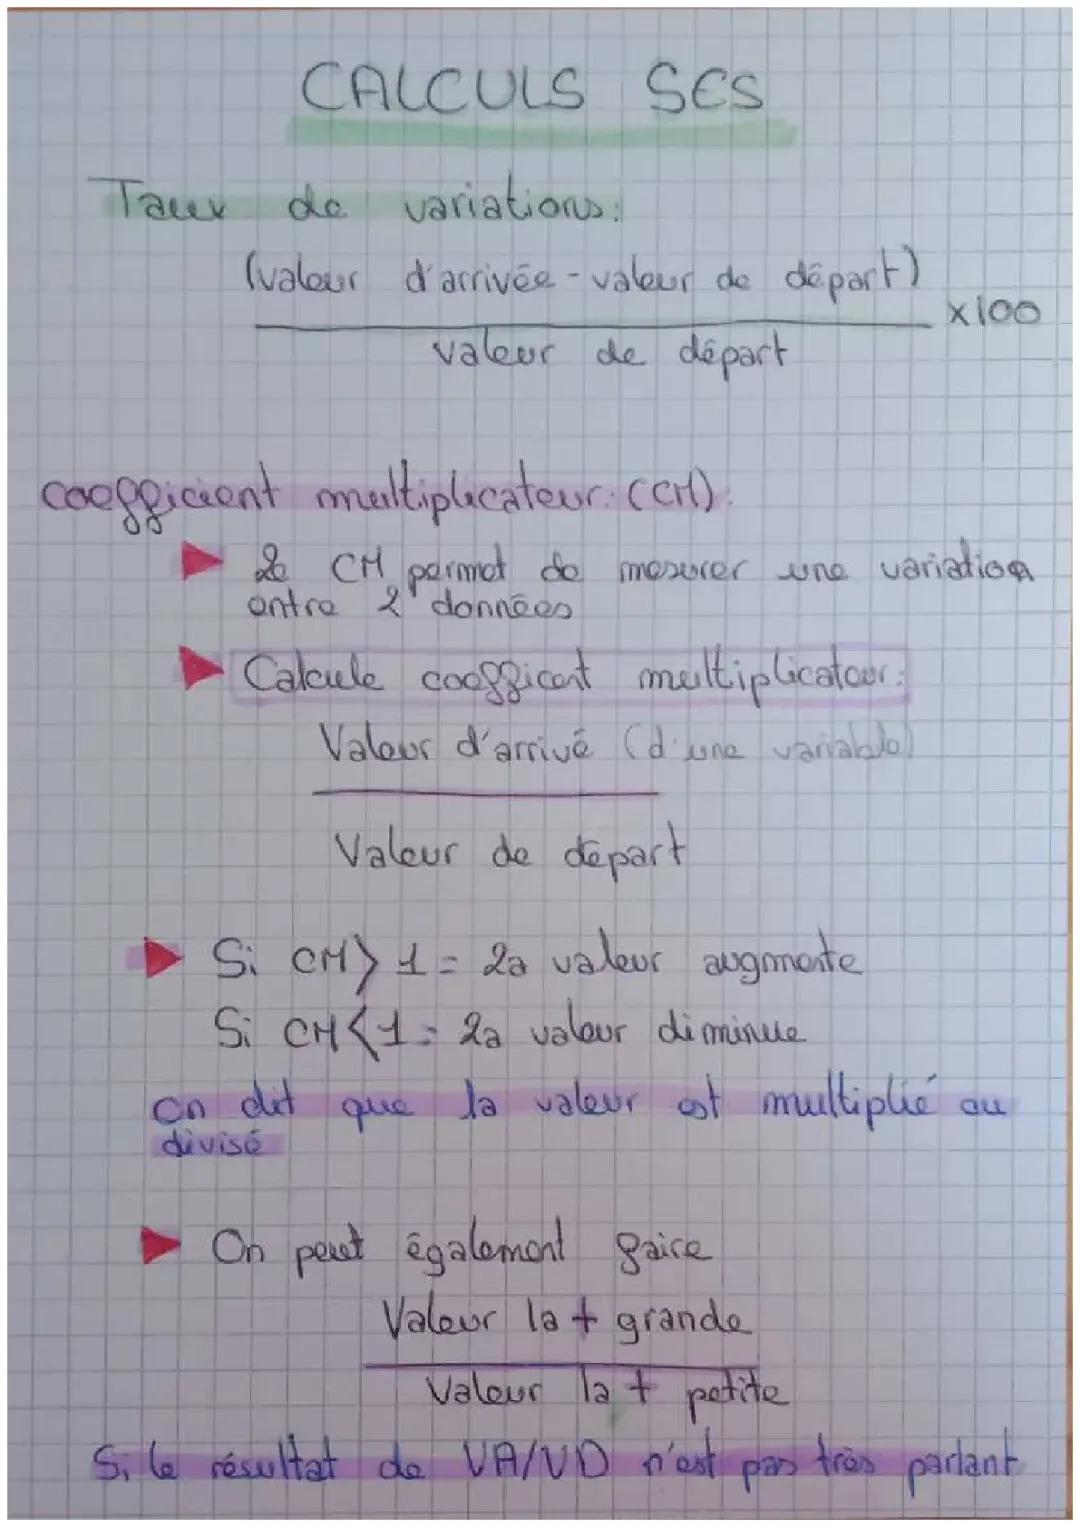 CALCULS SES
Taux de variations:
(valeur d'arrivée - valeur de départ)
x100
valeur de départ
coefficient multiplicateur: (CM):
Le CM permet de mesurer une variation
entre 2 données
Calcule coefficent multiplicateur:
Valeur d'arrivé (d'une variable)
Valeur de départ
Si CM > 1 = La valeur augmente
Si CM < 1 = La valeur diminue
On dit que la valeur est multiplié ou
divisé
On peut également faire
Valeur la + grande
Valeur la + petite
Si le résultat de VA/VD n'est pas très parlant